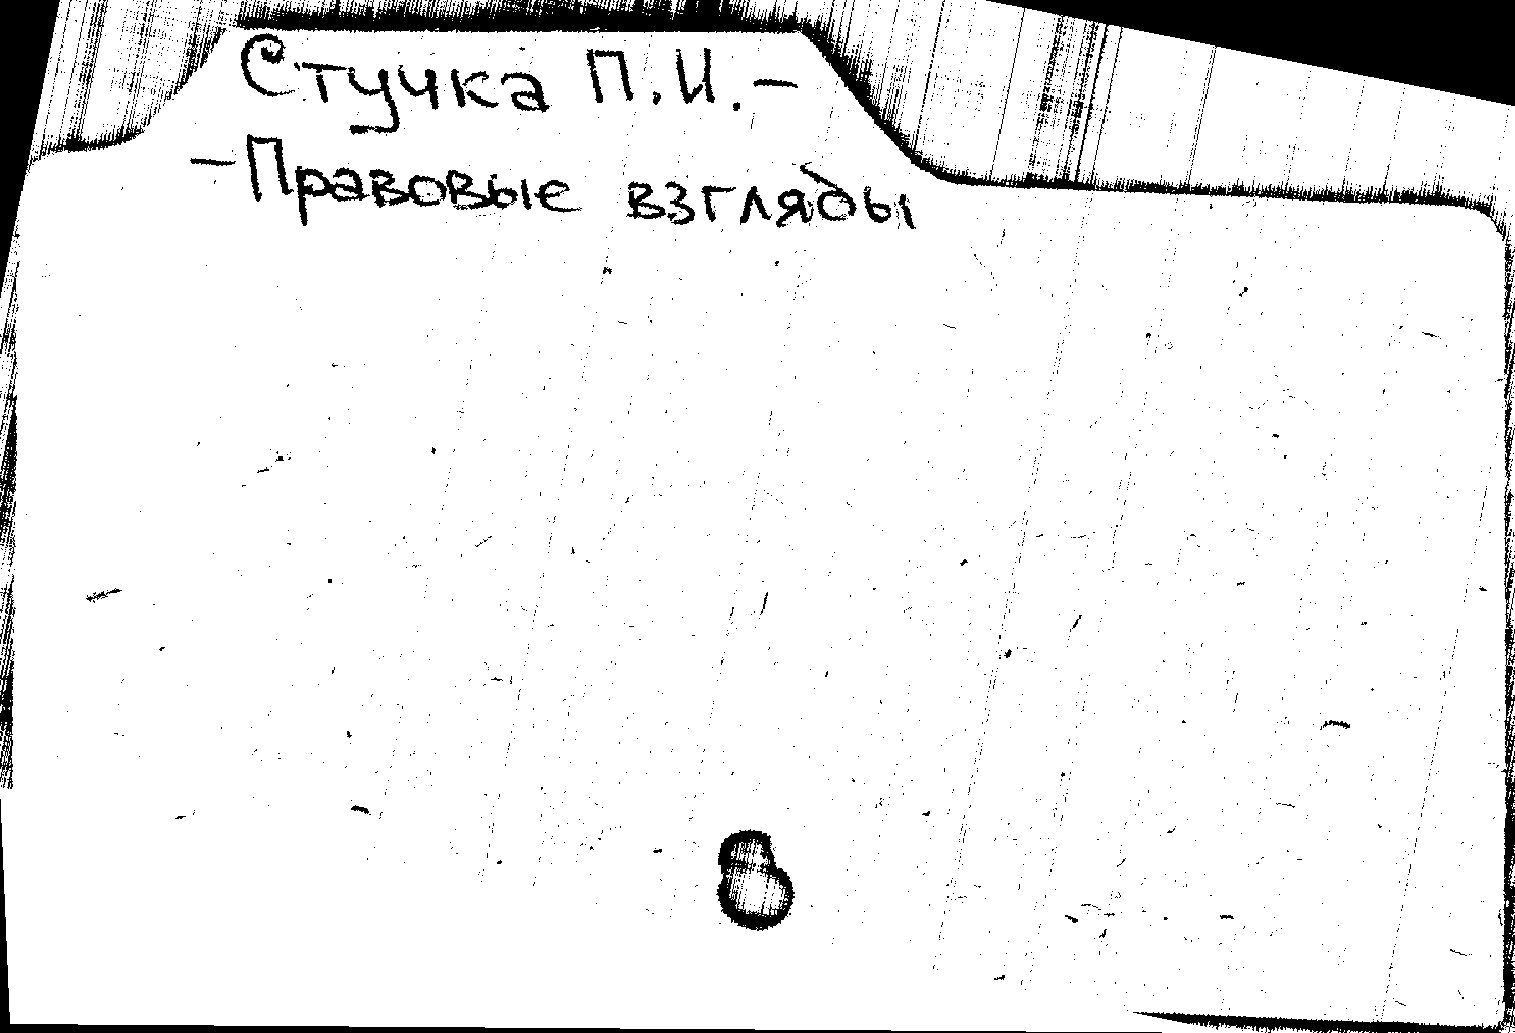 Стучка П.И. –
– Правовые взгляды